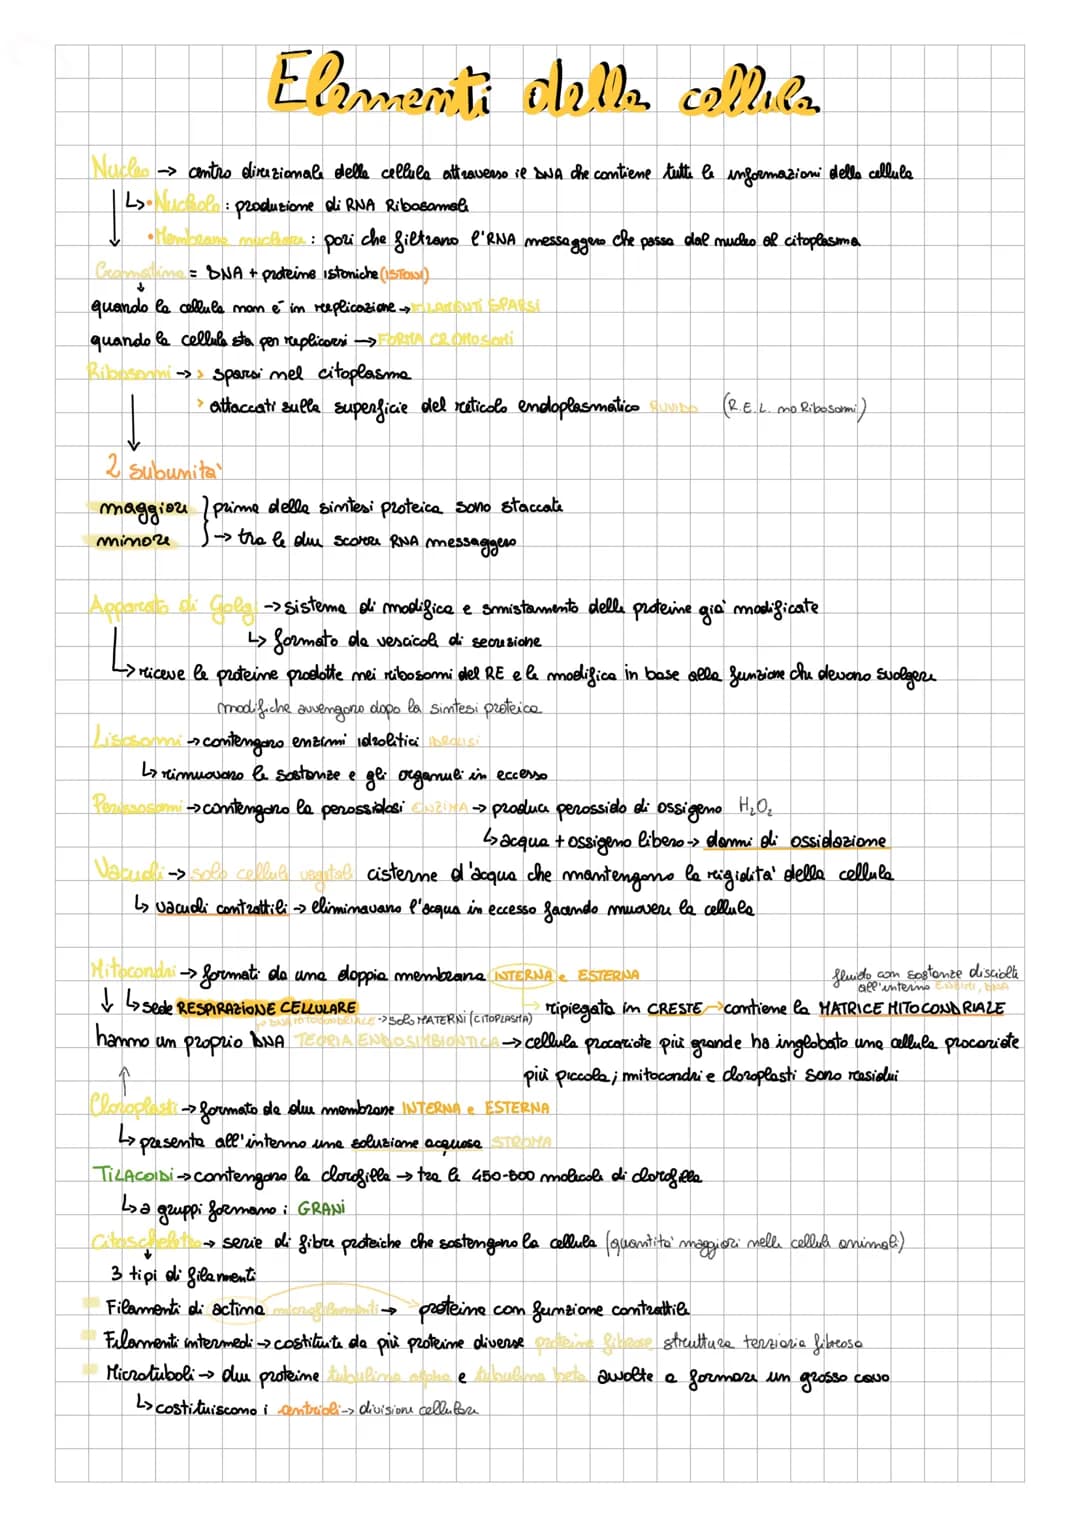 Elementi della cellula
Nucleo → centro direzionale della cellula attraverso il DNA che contiene tutte le informazioni della cellula
↳ • Nucleolo : produzione di RNA Ribosomale
• Membrana nucleare : pori che filtrano l'RNA messaggero che passa dal nucleo al citoplasma
Cromatina = DNA + proteine istoniche (ISTONI)
quando la cellula non è in replicazione → FILAMENTI SPARSI
quando la cellula sta per replicarsi → FORMA CROMOSOMI
Ribosomi → > sparsi nel citoplasma
> attaccati sulla superficie del reticolo endoplasmatico RUVIDO (R.E.L. no Ribosomi)
2 subunità
maggiore } prima della sintesi proteica sono staccate
minore → tra le due scorre RNA messaggero
Apparato di Golgi → sistema di modifica e smistamento delle proteine già modificate
↳ formato da vescicole di secrezione
↳ riceve le proteine prodotte nei ribosomi del RE e le modifica in base alla funzione che devono svolgere
modifiche avvengono dopo la sintesi proteica
Lisosomi → contengono enzimi idrolitici IDROLISI
↳ rimuovono le sostanze e gli organuli in eccesso
Perissosomi → contengono la perossidasi ENZIMA → produce perossido di ossigeno H₂O₂
↳ acqua + ossigeno libero → danni di ossidazione
Vacuoli → solo cellule vegetali cisterne d'acqua che mantengono la rigidità della cellula
↳ vacuoli contrattili → eliminavano l'acqua in eccesso facendo muovere la cellula
Mitocondri → formati da una doppia membrana INTERNA e ESTERNA
fluido con sostanze disciolte
all'interno ENZIMI, DNA
↓ ↳ sede RESPIRAZIONE CELLULARE → ripiegata in CRESTE → contiene la MATRICE MITOCONDRIALE
DNA MITOCONDRIALE → SOLO MATERNI (CITOPLASMA)
hanno un proprio DNA TEORIA ENDOSIMBIONTICA → cellula procariote più grande ha inglobato una cellula procariote
più piccola; mitocondri e cloroplasti sono residui
Cloroplasti → formato da due membrane INTERNA e ESTERNA
↳ presenta all'interno una soluzione acquosa STROMA
TILACOIDI → contengono la clorofilla → tra le 450-500 molecole di clorofilla
↳ a gruppi formano i GRANI
Citoscheletro → serie di fibre proteiche che sostengono la cellula (quantità maggiori nelle cellule animali)
3 tipi di filamenti
Filamenti di actina microfilamenti → proteine con funzione contrattile
Filamenti intermedi → costituite da più proteine diverse proteine fibrose struttura terziaria fibrosa
Microtuboli → due proteine tubulina alpha e tubulina beta avvolte a formare un grosso cavo
↳ costituiscono i centrioli → divisione cellulare